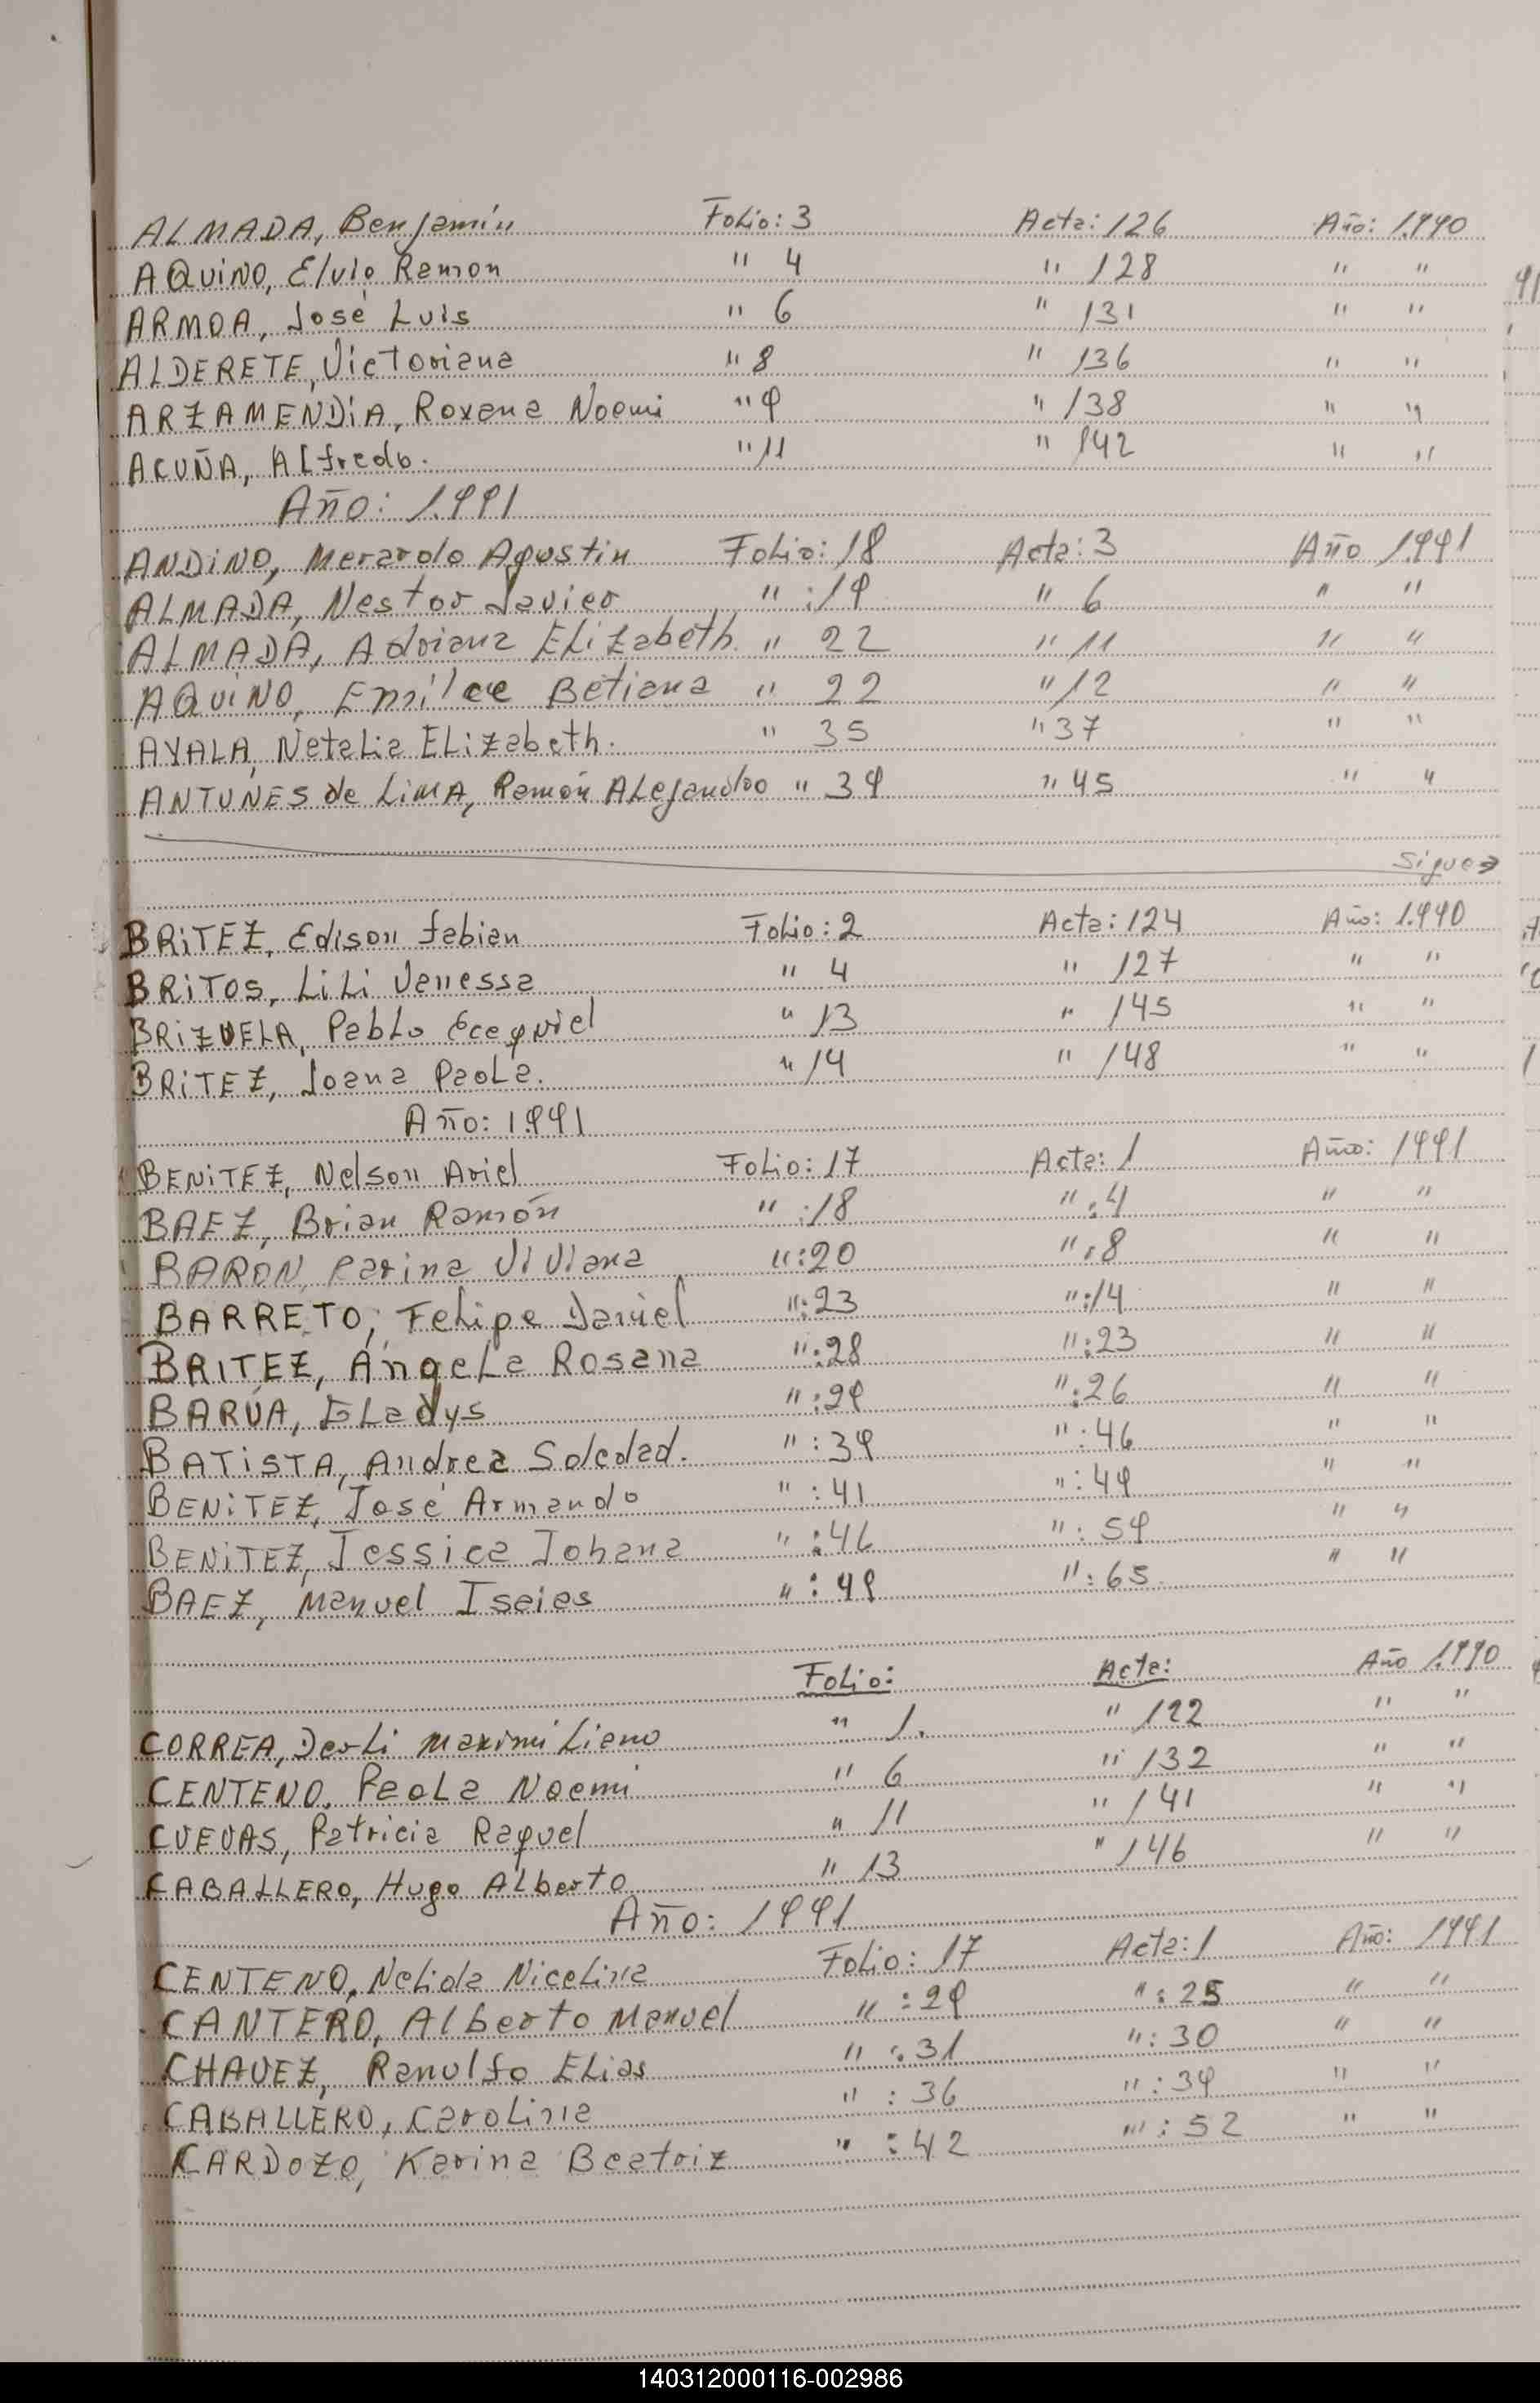 ALMADA, Benjamín Folio: 3 Acta: 126 Año: 1.990
AQUINO, Elvio Ramon " 4 " 128 " "
ARMOA, José Luis " 6 " 131 " "
ALDERETE, Victoriana " 8 " 136 " "
ARZAMENDIA, Roxana Noemi " 9 " 138 " "
ACUÑA, Alfredo. " 11 " 142 " "
Año: 1.991
ANDINO, Merardo Agustin Folio: 18 Acta: 3 Año 1.991
ALMADA, Nestor Javier " : 19 " 6 " "
ALMADA, Adriana Elizabeth. " 22 " 11 " "
AQUINO, Emilce Betiana " 22 " 12 " "
AYALA, Natalia Elizabeth. " 35 " 37 " "
ANTUNES de LIMA, Ramón Alejandro " 39 " 45 " "
Sigue→
BRITEZ, Edison fabian Folio: 2 Acta: 124 Año: 1.990
BRITOS, Lili Vanessa " 4 " 127 " "
BRIZUELA, Pablo Ecequiel " 13 " 145 " "
BRITEZ, Joana Paola. " 14 " 148 " "
Año: 1.991
BENITEZ, Nelson Ariel Folio: 17 Acta: 1 Año: 1991
BAEZ, Brian Ramón " : 18 " : 4 " "
BARON, Carina Viviana " : 20 " : 8 " "
BARRETO, Felipe Daniel " : 23 " : 14 " "
BRITEZ, Ángela Rosana " : 28 " : 23 " "
BARÚA, Gladys " : 29 " : 26 " "
BATISTA, Andrea Soledad. " : 39 " : 46 " "
BENITEZ, José Armando " : 41 " : 49 " "
BENITEZ, Jessica Johana " : 46 " : 59 " "
BAEZ, Manuel Isaias " : 49 " : 65 " "
Folio: Acta: Año 1.990
CORREA, Derli Maximiliano " 1. " 122 " "
CENTENO, Paola Noemi " 6 " 132 " "
CUEVAS, Patricia Raquel " 11 " 141 " "
CABALLERO, Hugo Alberto " 13 " 146 " "
Año: 1991
CENTENO, Nelida Nicolina Folio: 17 Acta: 1 Año: 1991
CANTERO, Alberto Manuel " : 29 " : 25 " "
CHAVEZ, Ranulfo Elias " : 31 " : 30 " "
CABALLERO, Carolina " : 36 " : 39 " "
CARDOZO, Karina Beatriz " : 42 " : 52 " "
140312000116-002986